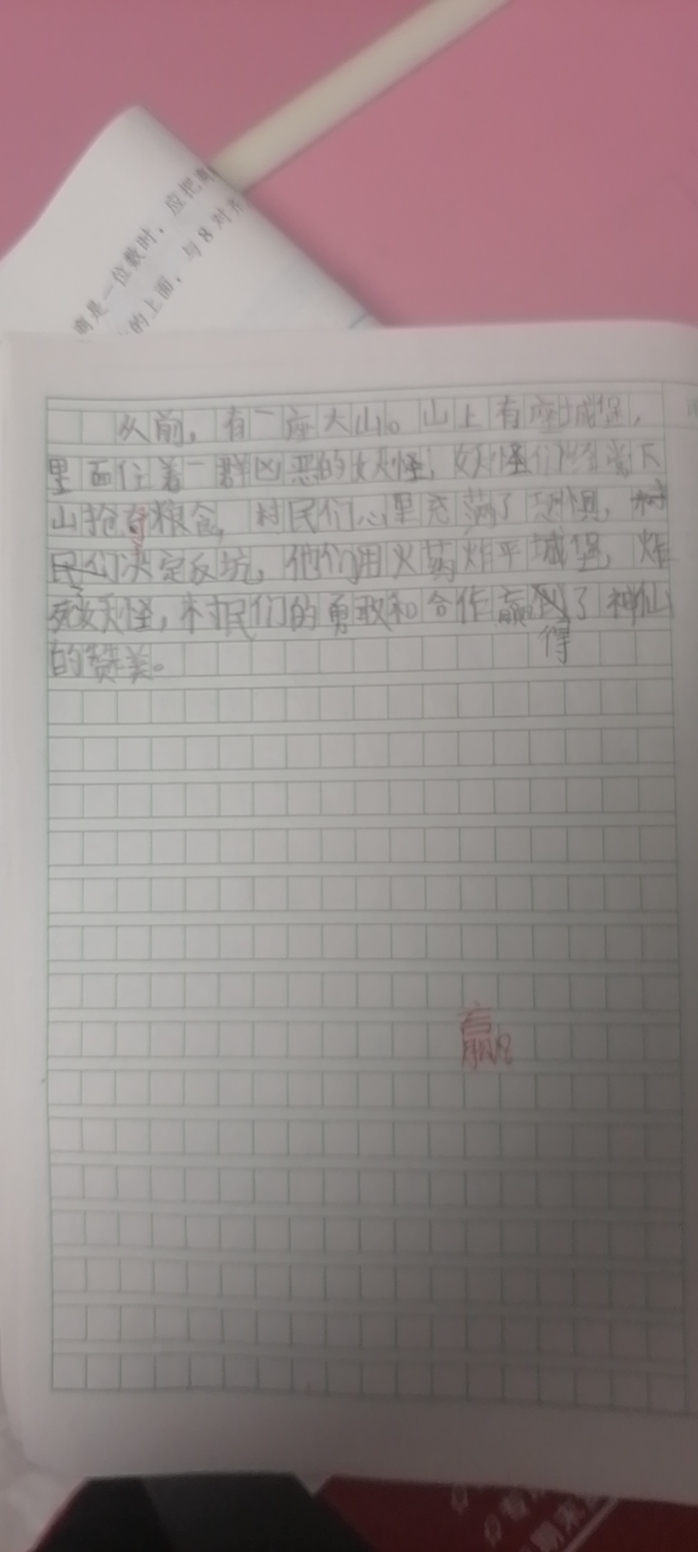 商是一位数时，应把商
的上面，与8对齐
从前，有一座大山。山上有座城堡，
里面住着一群凶恶的妖怪，妖怪们经常下
山抢夺粮食，村民们心里充满了恐惧，村
民们决定反坑，他们用火药炸平城堡，炸
死妖怪，村民们的勇敢和合作赢得了神仙
的赞美。
赢